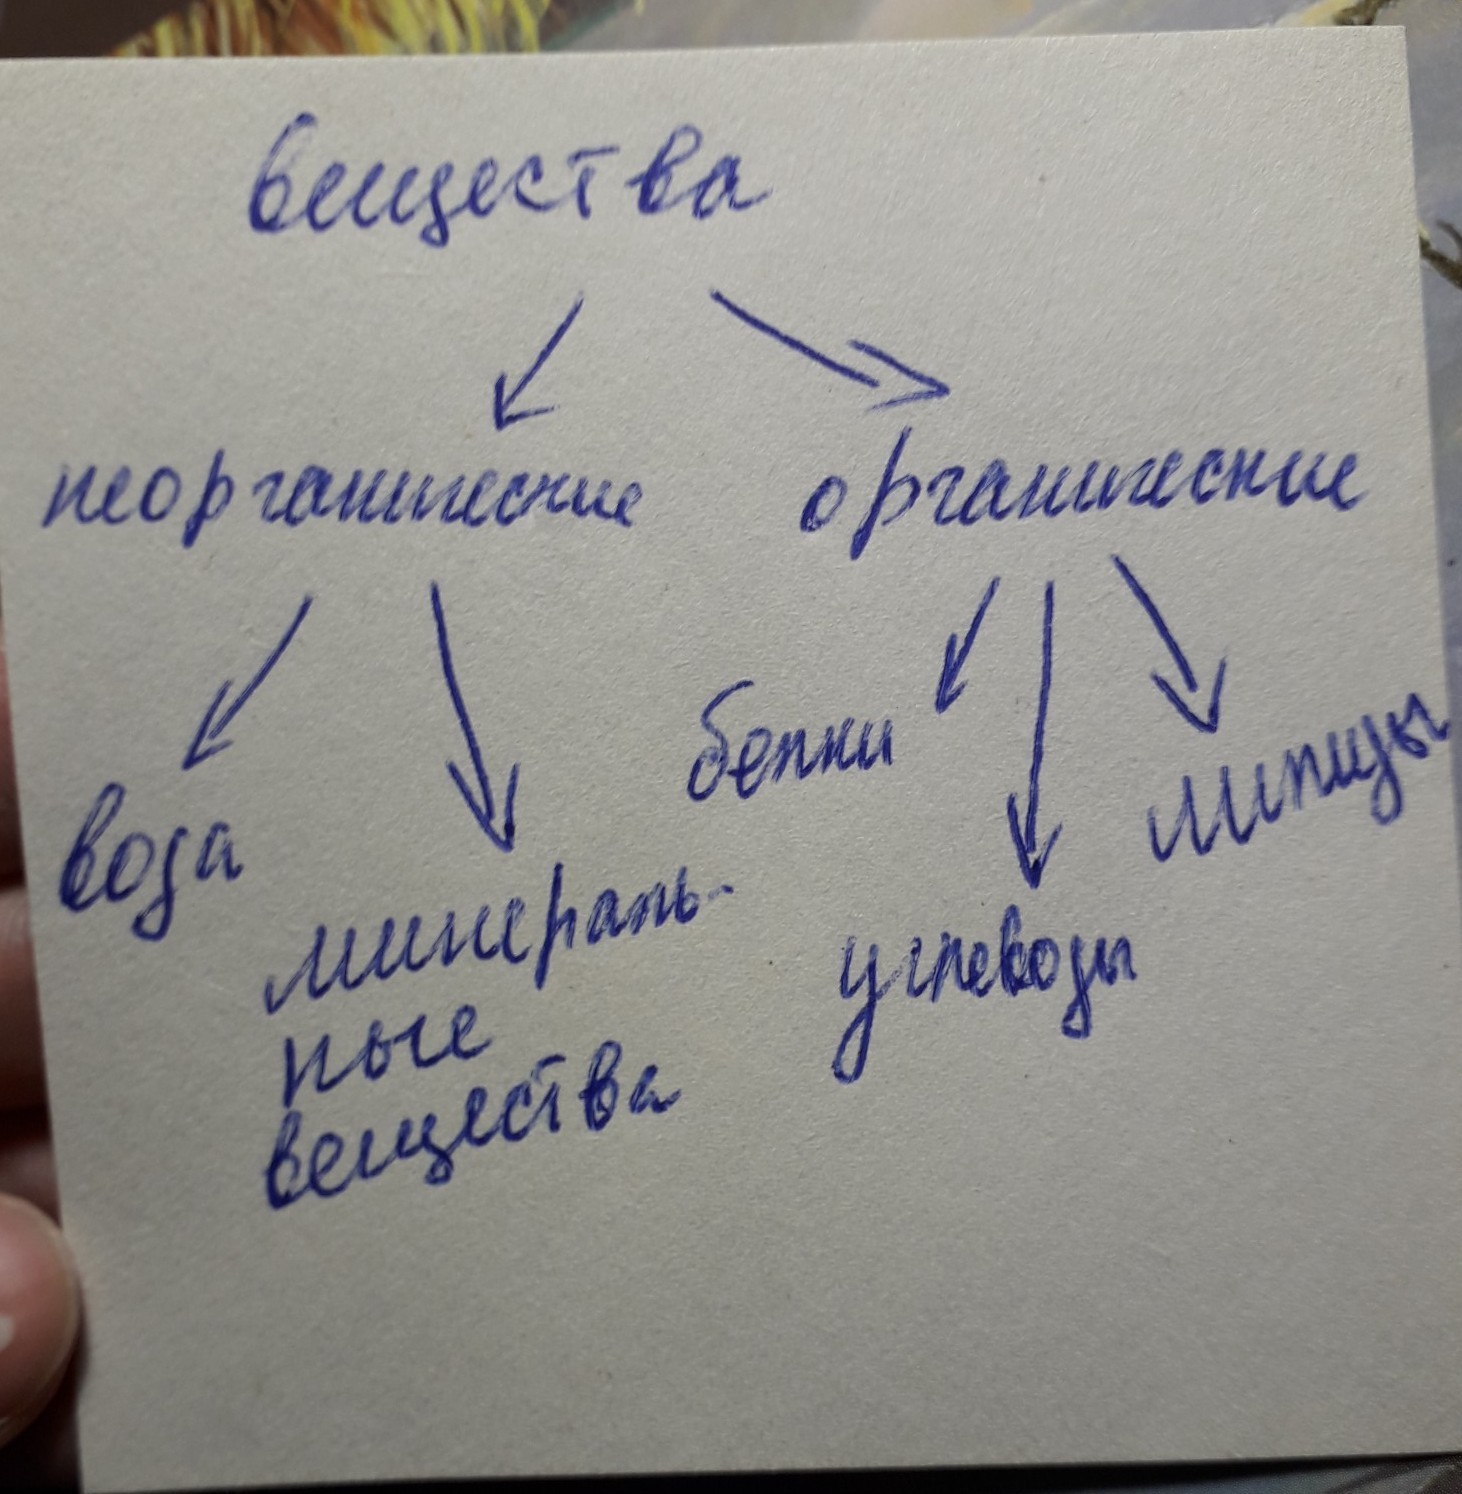 вещества
неорганические
органические
белки
липиды
вода
минераль-
ные
вещества
углеводы